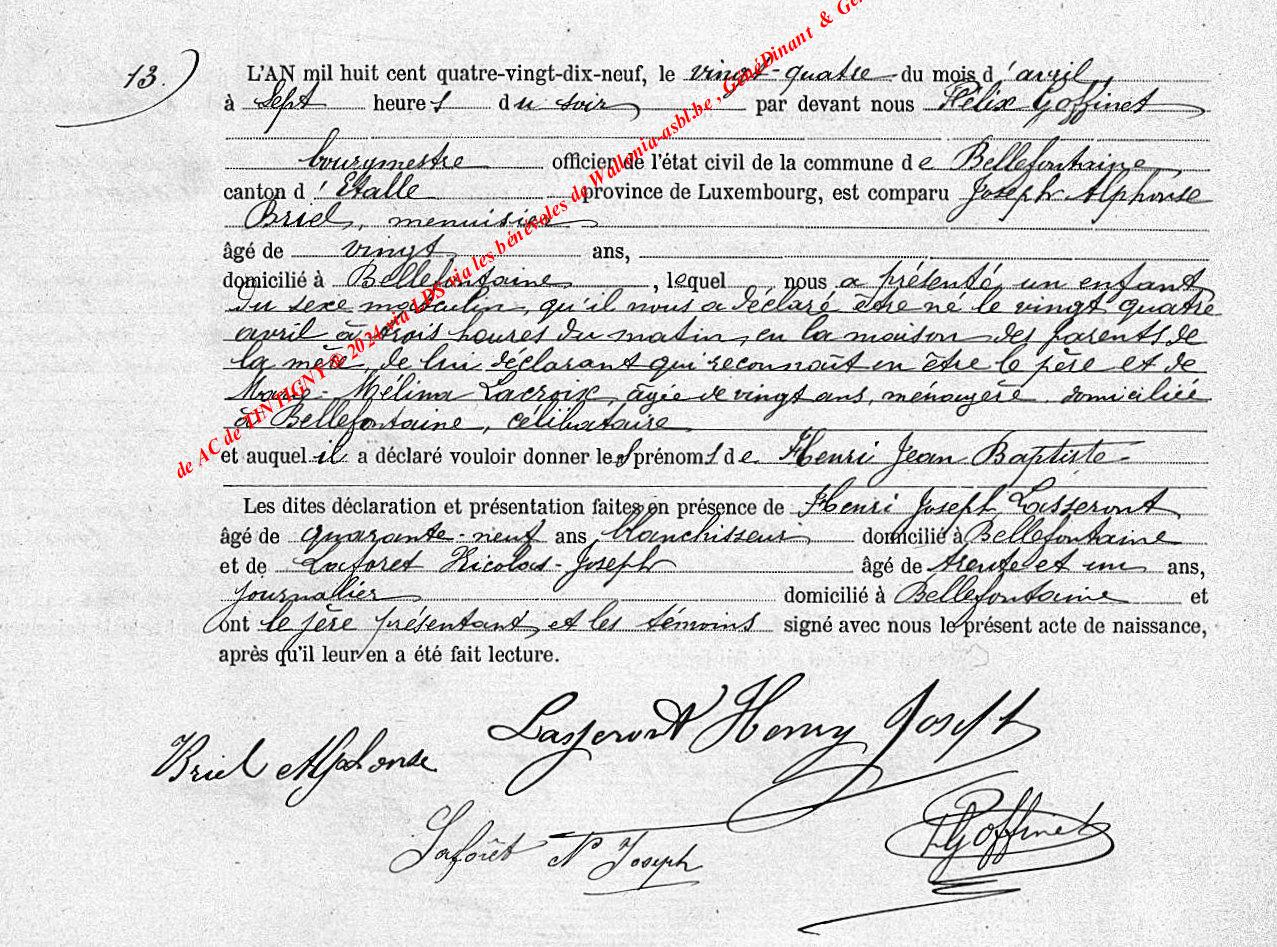 13.
L'AN mil huit cent quatre-vingt-dix-neuf, le vingt-quatre du mois d'avril
à sept heures du soir par devant nous Félix Goffinet
bourgmestre officier de l'état civil de la commune de Bellefontaine,
canton d'Etalle province de Luxembourg, est comparu Joseph Alphonse
Briel, menuisier
âgé de vingt ans,
domicilié à Bellefontaine, lequel nous a présenté un enfant
du sexe masculin, qu'il nous a déclaré être né le vingt quatre
avril à trois heures du matin, en la maison des parents de
la mère, de lui déclarant qui reconnaît en être le père et de
Marie-Mélina Lacroix, âgée de vingt ans, ménagère domiciliée
à Bellefontaine, célibataire
et auquel il a déclaré vouloir donner les prénoms de Henri Jean Baptiste
Les dites déclaration et présentation faites en présence de Henri Joseph Lasseront
âgé de quarante-neuf ans, blanchisseur domicilié à Bellefontaine
et de Laforet Nicolas-Joseph âgé de trente et un ans,
journalier domicilié à Bellefontaine et
ont le père présentant, et les témoins signé avec nous le présent acte de naissance,
après qu'il leur en a été fait lecture.
Lasseront Henry Joseph
Briel Alphonse
Laforêt N Joseph
F Goffinet
de AC de TINTIGNY © 2024 via LDS via les bénévoles de Wallonia-asbl.be, GénéDinant & Gé